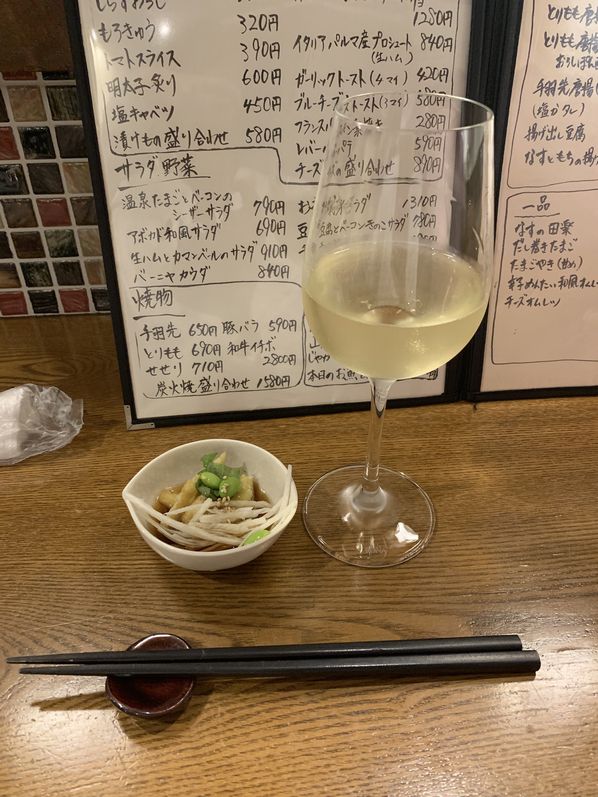 しらすおろし
もろきゅう 320円
トマトスライス 390円
明太子炙り 600円
塩キャベツ 450円
漬けもの盛り合わせ 580円
1280円
イタリアパルマ産プロシュート(生ハム) 840円
ガーリックトースト(4マイ) 420円
ブルーチーズトースト(3マイ) 580円
280円
590円
盛り合わせ 890円
サラダ 野菜
温泉たまごとベーコンの
シーザーサラダ 790円
アボカド和風サラダ 690円
生ハムとカマンベールのサラダ 910円
バーニャカウダ 840円
1310円
780円
焼物
手羽先 650円 豚バラ 590円
とりもも 690円 和牛イチボ
せせり 710円 2800円
炭火焼盛り合わせ 1580円
本日のお魚
とりもも唐揚
とりもも唐揚
おろしぽん酢
手羽先唐揚
(塩かタレ)
揚げ出し豆腐
なすともちの揚げ
一品
なすの田楽
だし巻きたまご
たまごやき(甘め)
チーズオムレツ